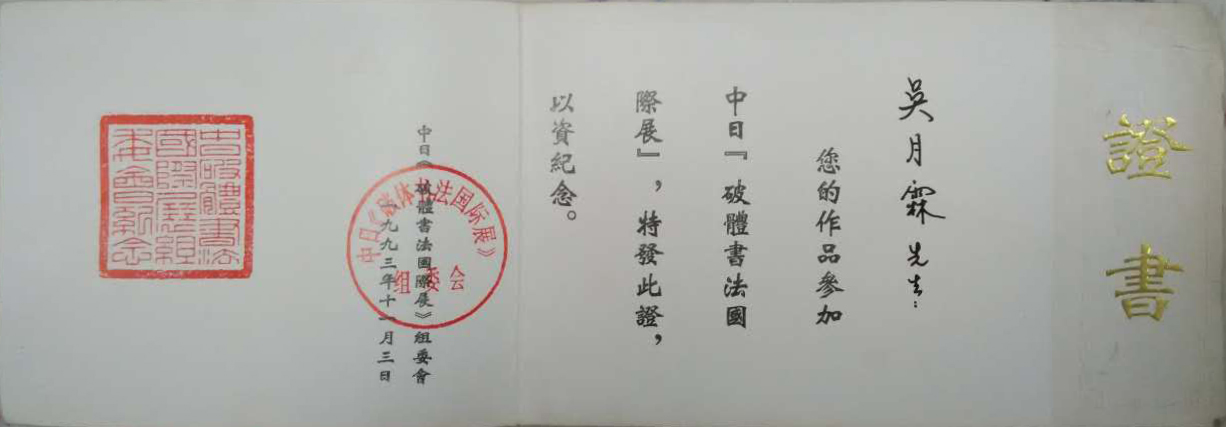 證書
吳月霖先生：
您的作品參加
中日『破體書法國
際展』，特發此證，
以資紀念。
中日《破體書法國際展》組委會
一九九三年十一月三日
中日《破体书法国际展》
组委会
中日破體書法
國際展組
委會紀念